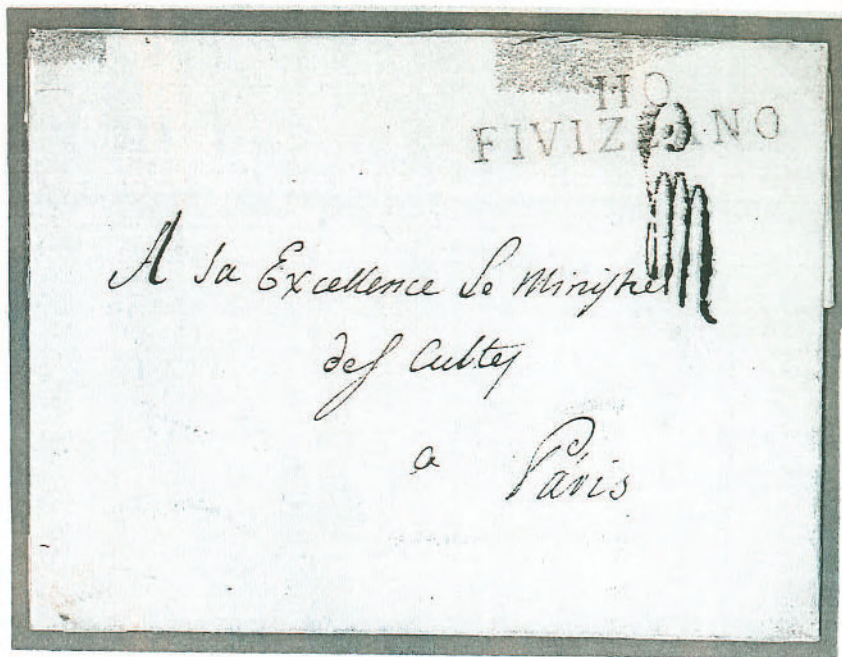 110
FIVIZZANO
A Sa Excellence Le Ministre
des Cultes
a Paris